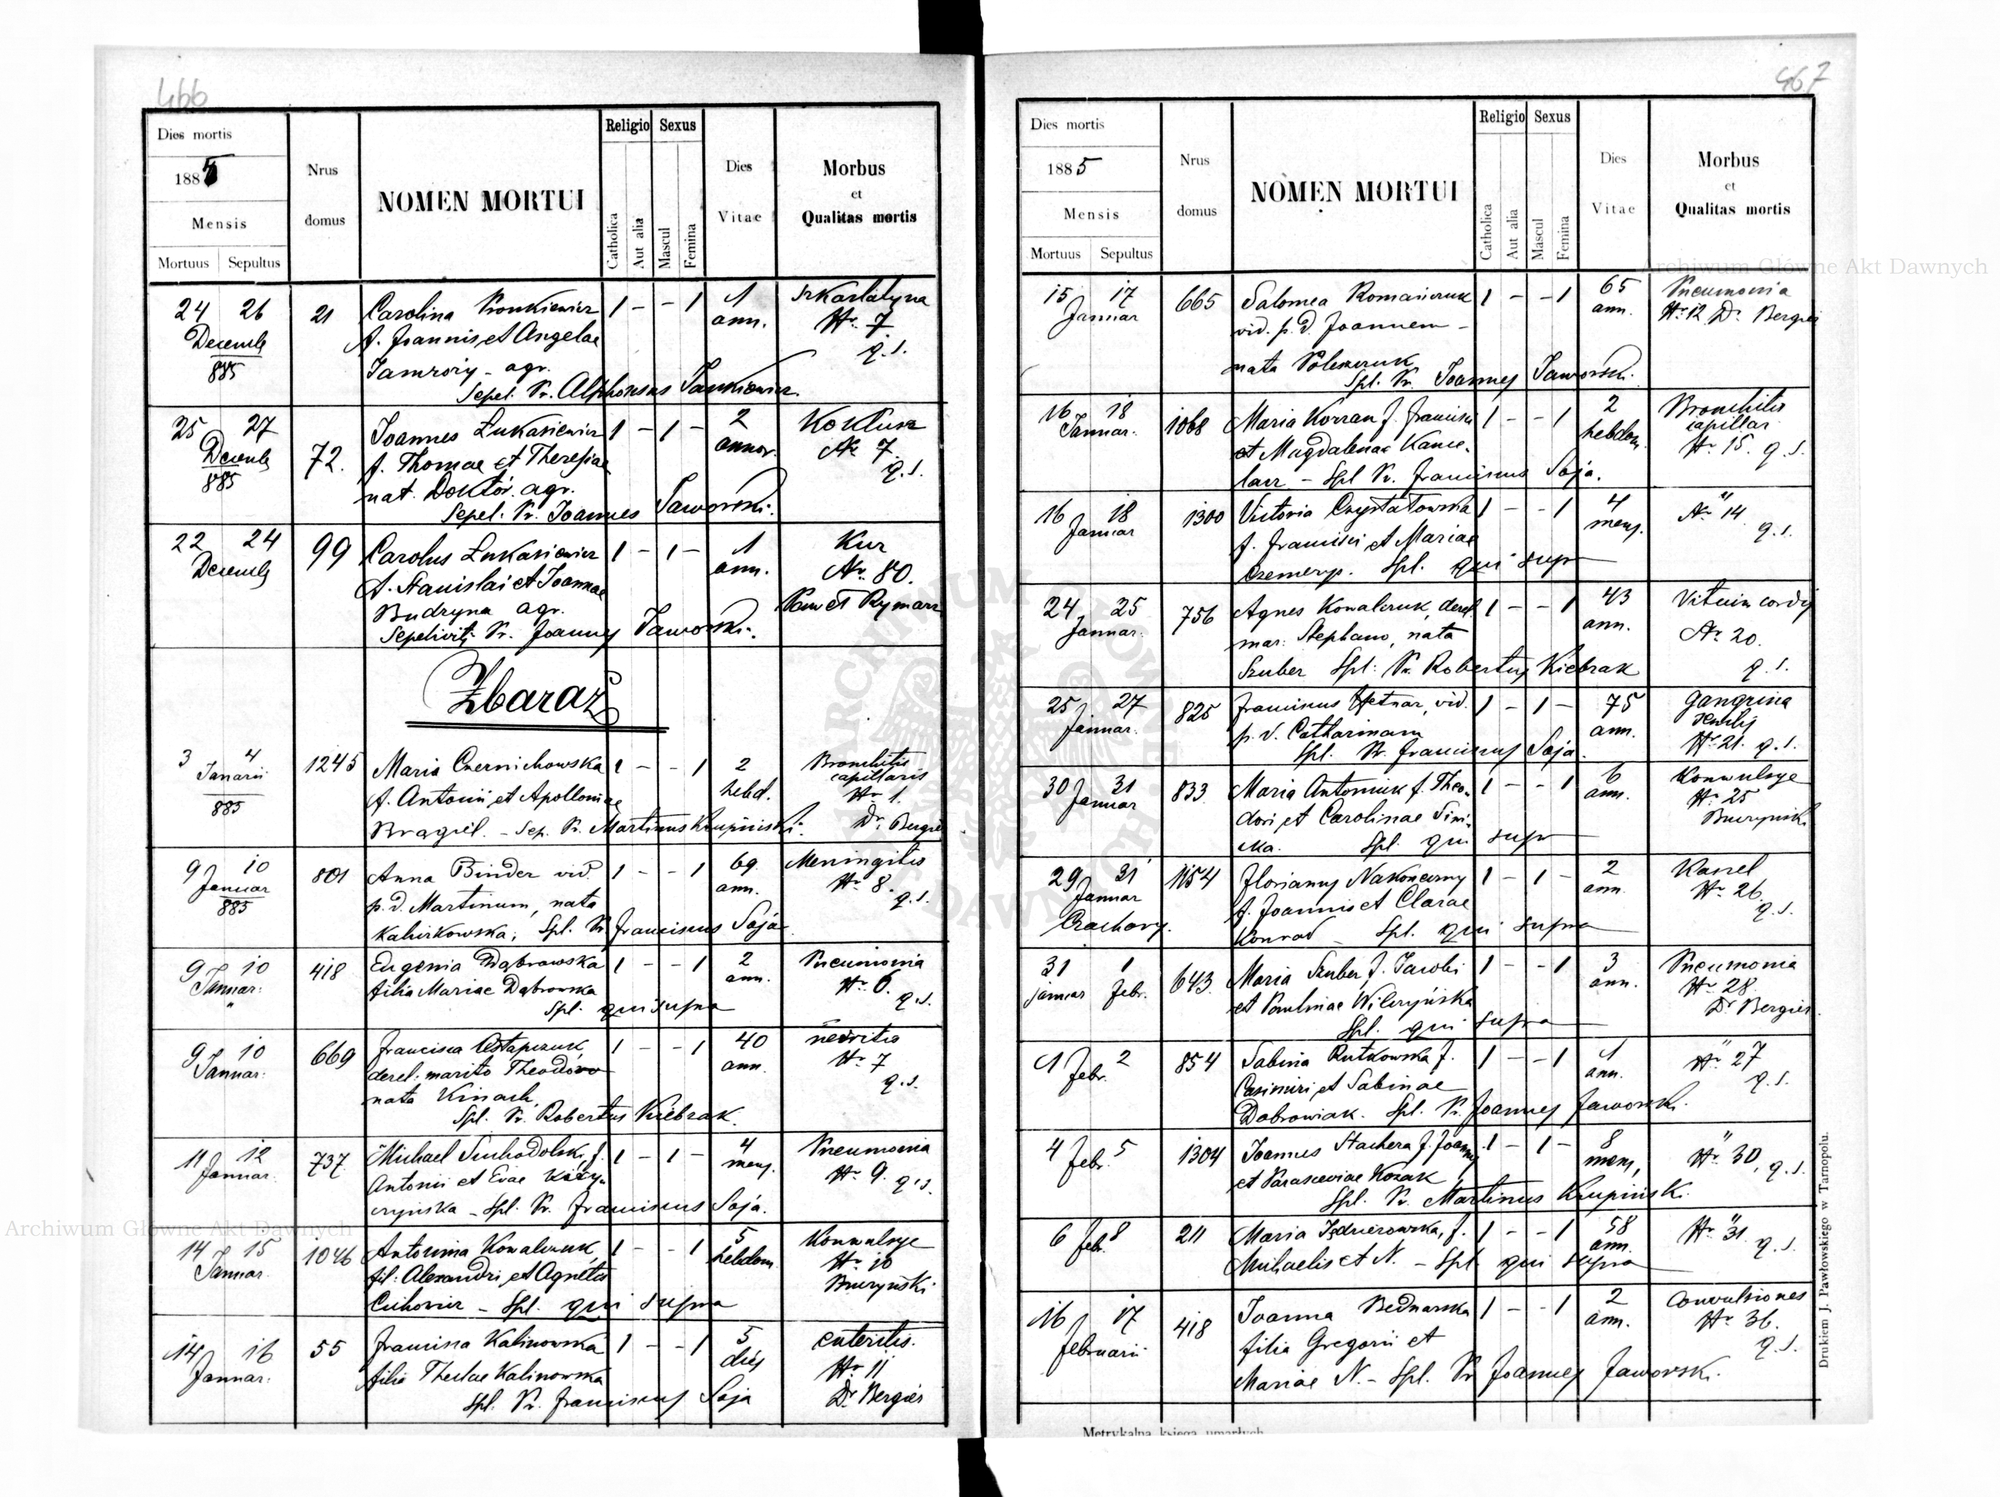 466
Dies mortis
1885
Mensis
Mortuus Sepultus
Nrus
domus
NOMEN MORTUI
Religio
Catholica
Aut alia
Sexus
Mascul
Femina
Dies
Vitae
Morbus
et
Qualitas mortis
24 26
Decemb
885
21
Carolina
f. Joannis et Angelae
Jamroży - agr.
Sepel. Pr. Alphonsus Jankiewicz.
1 - - 1
1
ann.
Szkarlatyna
Nr. 7
q. s.
25 27
Decemb
885
72.
Joannes Łukasiewicz
f. Thomae et Theresiae
nat. Doktór. agr.
Sepel. Pr. Joannes Jaworski.
1 - 1 -
2
annor.
Koklusz
Nr 7
q. s.
22 24
Decemb
99
Carolus Łukasiewicz
f. Stanislai et Joannae
Budzyna agr.
Sepelivit Pr. Joannes Jaworski.
1 - 1 -
1
ann.
Kur
Nr. 80.
Paweł Rymarz
Zbaraż
3 4
Januarii
885
1245
Maria Czernichowska
f. Antonii et Apolloniae
Bragiel. - Sep. Pr. Martinus Krupiński.
1 - - 1
2
hebd.
Bronchitis
capillaris
Nr 1.
Dr. Bergier
9 10
Januar
885
801
Anna Binder vid.
p. d. Martinum, nata
; Spl. Pr. Franciscus Soja
1 - - 1
69
ann.
Meningitis
Nr 8.
q. s.
9 10
Januar.
"
418
Eugenia Dąbrowska
filia Mariae Dąbrowska
Spl. qui supra
1 - - 1
2
ann.
Pneumonia
Nr 6.
q. s.
9 10
Januar.
669
Francisca Ostapczuk,
derel. marito Theodoro
nata Kinach,
Spl. Pr. Robertus Kiebzak.
1 - - 1
40
ann.
Nr 7
q. s.
11 12
Januar.
737
Michael Suchodolski, f.
Antonii et Evae
- Spl. Pr. Franciscus Soja.
1 - 1 -
4
mens.
Pneumonia
Nr 9. q. s.
14 15
Januar.
1046
Antonina Kowalczuk,
fil. Alexandri et Agnetis
Cichowicz - Spl. qui supra
1 - - 1
5
hebdom
Konwulsye
Nr 10
Buczyński
14 16
Januar.
55
Francisca Kalinowska
filia Theclae Kalinowska
Spl. Pr. Franciscus Soja
1 - - 1
5
dies
enteritis.
Nr 11
Dr Bergier
467
Dies mortis
1885
Mensis
Mortuus Sepultus
Nrus
domus
NOMEN MORTUI
Religio
Catholica
Aut alia
Sexus
Mascul
Femina
Dies
Vitae
Morbus
et
Qualitas mortis
15 17
Januar
665
Salomea Romaniczuk
vid. p. d. Joannem -
nata
Spl. Pr. Joannes Jaworski.
1 - - 1
65
ann.
Pneumonia
Nr 12. Dr. Bergier
16 18
Januar.
1068
Maria Korzan f. Francisci
et Magdalenae Kance-
larz - Spl Pr. Franciscus Soja.
1 - - 1
2
hebdom.
Bronchitis
capillar.
Nr 15. q. s.
16 18
Januar
1300
Victoria Czystałowska
f. Francisci et Mariae
Czemerys. Spl. qui supra
1 - - 1
4
mens.
"
Nr 14.
q. s.
24 25
Januar.
756
Agnes Kowalczuk, derel.
mar. Stephano, nata
Szuber Spl. Pr. Robertus Kiebzak
1 - - 1
43
ann.
Vitium cordis
Nr 20.
q. s.
25 27
Januar.
825
Franciscus Hetnar, vid.
p. d. Catharinam
Spl. Pr. Franciscus Soja.
1 - 1 -
75
ann.
Gangrena
senilis
Nr 21. q. s.
30 31
Januar
833
Maria Antoniuk f. Theo-
dori et Carolinae
Spl. qui supra
1 - - 1
6
ann.
Konwulsye
Nr 25
Buczyński
29 31
Januar
Czachary.
1154
Florianus Nakoneczny
f. Joannis et Clarae
Konrad - Spl. qui supra
1 - 1 -
2
ann.
Kaszel
Nr 26.
q. s.
31 1
Januar Febr.
643.
Maria Szuber, f. Jacobi
et Paulinae Wilczyńska
Spl. qui supra
1 - - 1
3
ann.
Pneumonia
Nr 28.
Dr Bergier.
1 2
Febr.
854
Sabina Rutkowska f.
Casimiri et Sabinae
Dobrowiak. Spl. Pr. Joannes Jaworski.
1 - - 1
1
ann.
"
Nr 27
q. s.
4 5
Febr.
1304
Joannes Stachera f. Joannis
et Parasceviae Kozak
Spl. Pr. Martinus Krupiński.
1 - 1 -
8
mens,
"
Nr 30, q. s.
6 8
Feb.
211
Maria Jędrzejowska, f.
Michaelis et N. - Spl. qui supra
1 - - 1
58
ann.
"
Nr 31. q. s.
16 17
Februarii
418
Joanna Bednarska
filia Gregorii et
Mariae N. - Spl. Pr Joannes Jaworski.
1 - - 1
2
ann.
Convulsiones
Nr 36.
q. s.
Drukiem J. Pawłowskiego w Tarnopolu.
Metrykalna księga umarłych
Archiwum Główne Akt Dawnych
Archiwum Główne Akt Dawnych
ARCHIWUM GŁÓWNE AKT DAWNYCH